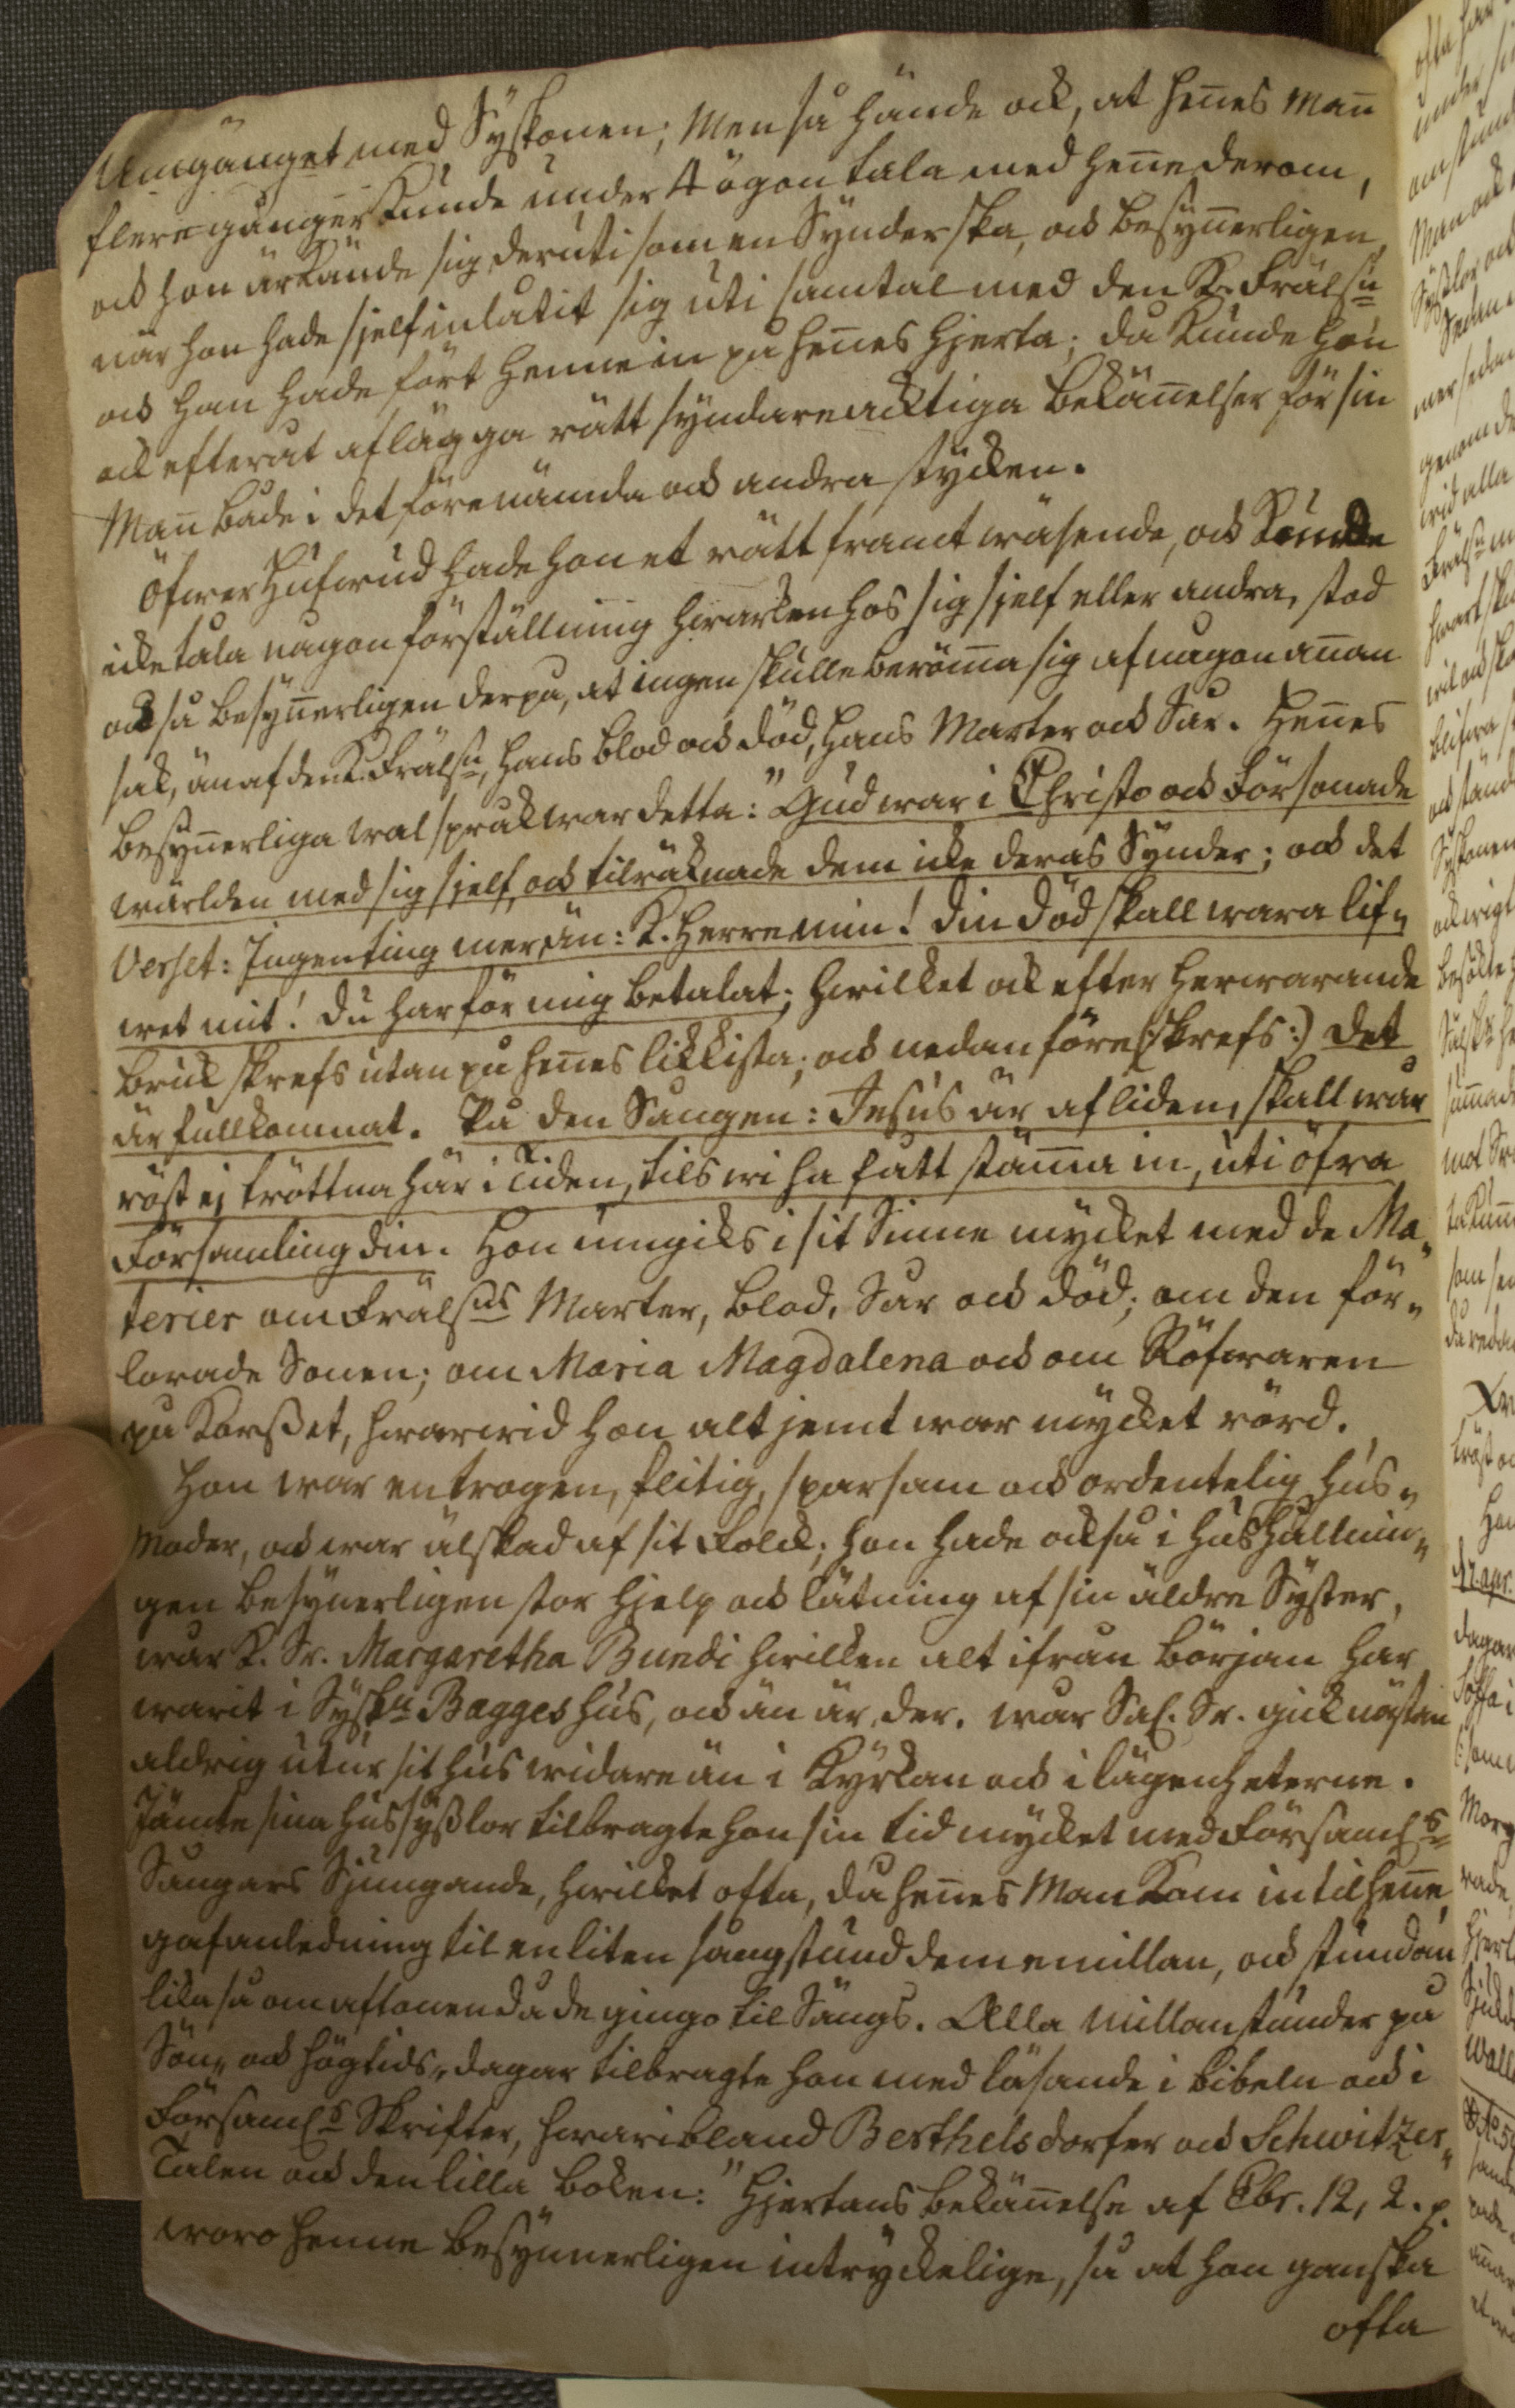 Umgänget med Syskonen; Men så hände ock, at hen̄es Man̄
flere gånger kunde under 4 ögon tala med hen̄e derom,
och hon ärkände sig deruti som en Synderska, och besyn̄erligen,
när hon hade sjelf inlåtit sig uti samtal med den K. Frälsn
och han hade fört henne in på hen̄es hjerta; då kunde hon
ock efteråt aflägga rätt syndareacktiga bekän̄elser för sin
Man̄ både i det förenämda och andra stycken.
Öfwer Hufwud hade hon et rätt framt wäsende, och kunde
icke tåla någon förställning hwarken hos sig sjelf eller andra, stod
ock så besyn̄erligen derpå, at ingen skulle beröm̄a sig af någon an̄an
sak, än af den K. Frälsn, hans blod och död, hans Marter och Sår. Hen̄es
besyn̄erliga walspråk war detta: "Gud war i Christo och försonade
wärlden med sig sjelf, och tilräknade dem icke deras Synder; och det
Verset: Ingenting mer, än: K. Herre min! din död skall wara lif„
wet mit! du har för mig betalat; hwilket ock efter herwarande
bruk skrefs utan på hen̄es likkista; och nedanföre (:skrefs:) det
är fullkomnat. På den Sången: Jesus är afliden, skall wår
röst ej tröttna här i Tiden, tils wi ha fått stäm̄a in, uti öfra
Församling din. Hon umgicks i sit Sinne mycket med de Ma„
terier om Frälsns Marter, blod, Sår och död; om den för„
lorade Sonen; om Maria Magdalena och om Röfwaren
på Korßet, hwarwid hon alt jemt war mycket rörd.
Hon war en trogen, flitig, sparsam och ordentelig Hus„
Moder, och war älskad af sit Folck; hon hade också i hushållnin„
gen besynerligen stor hjelp och lätning af sin äldre Syster,
wår K. Sr. Margaretha Bundi hwilken alt ifrån början har
warit i Syskn Bagges hus, och än är der. wår Sal. Sr. gick nästan
aldrig utur sit hus widare än i Kyrkan och i lägenheterne.
Jämte sina hussyßlor tilbragte hon sin tid mycket med Församls
Sångars Sjungande, hwilket ofta, då hen̄es Man kom in til hen̄e,
gaf anledning til en liten sångstund dem emillan, och stundom
lika så om aftonen då de gingo til Sängs. Alla millanstunder på
Sön„ och högtids„dagar tilbragte hon med läsande i bibeln och i
Församls Skrifter, hwaribland Berthelsdorfer och Schwitzer„
Talen och den lilla boken: "Hjertans bekän̄else af Ebr. 12, 2. p.
woro henne besynnerligen intryckelige, så at hon ganska
ofta